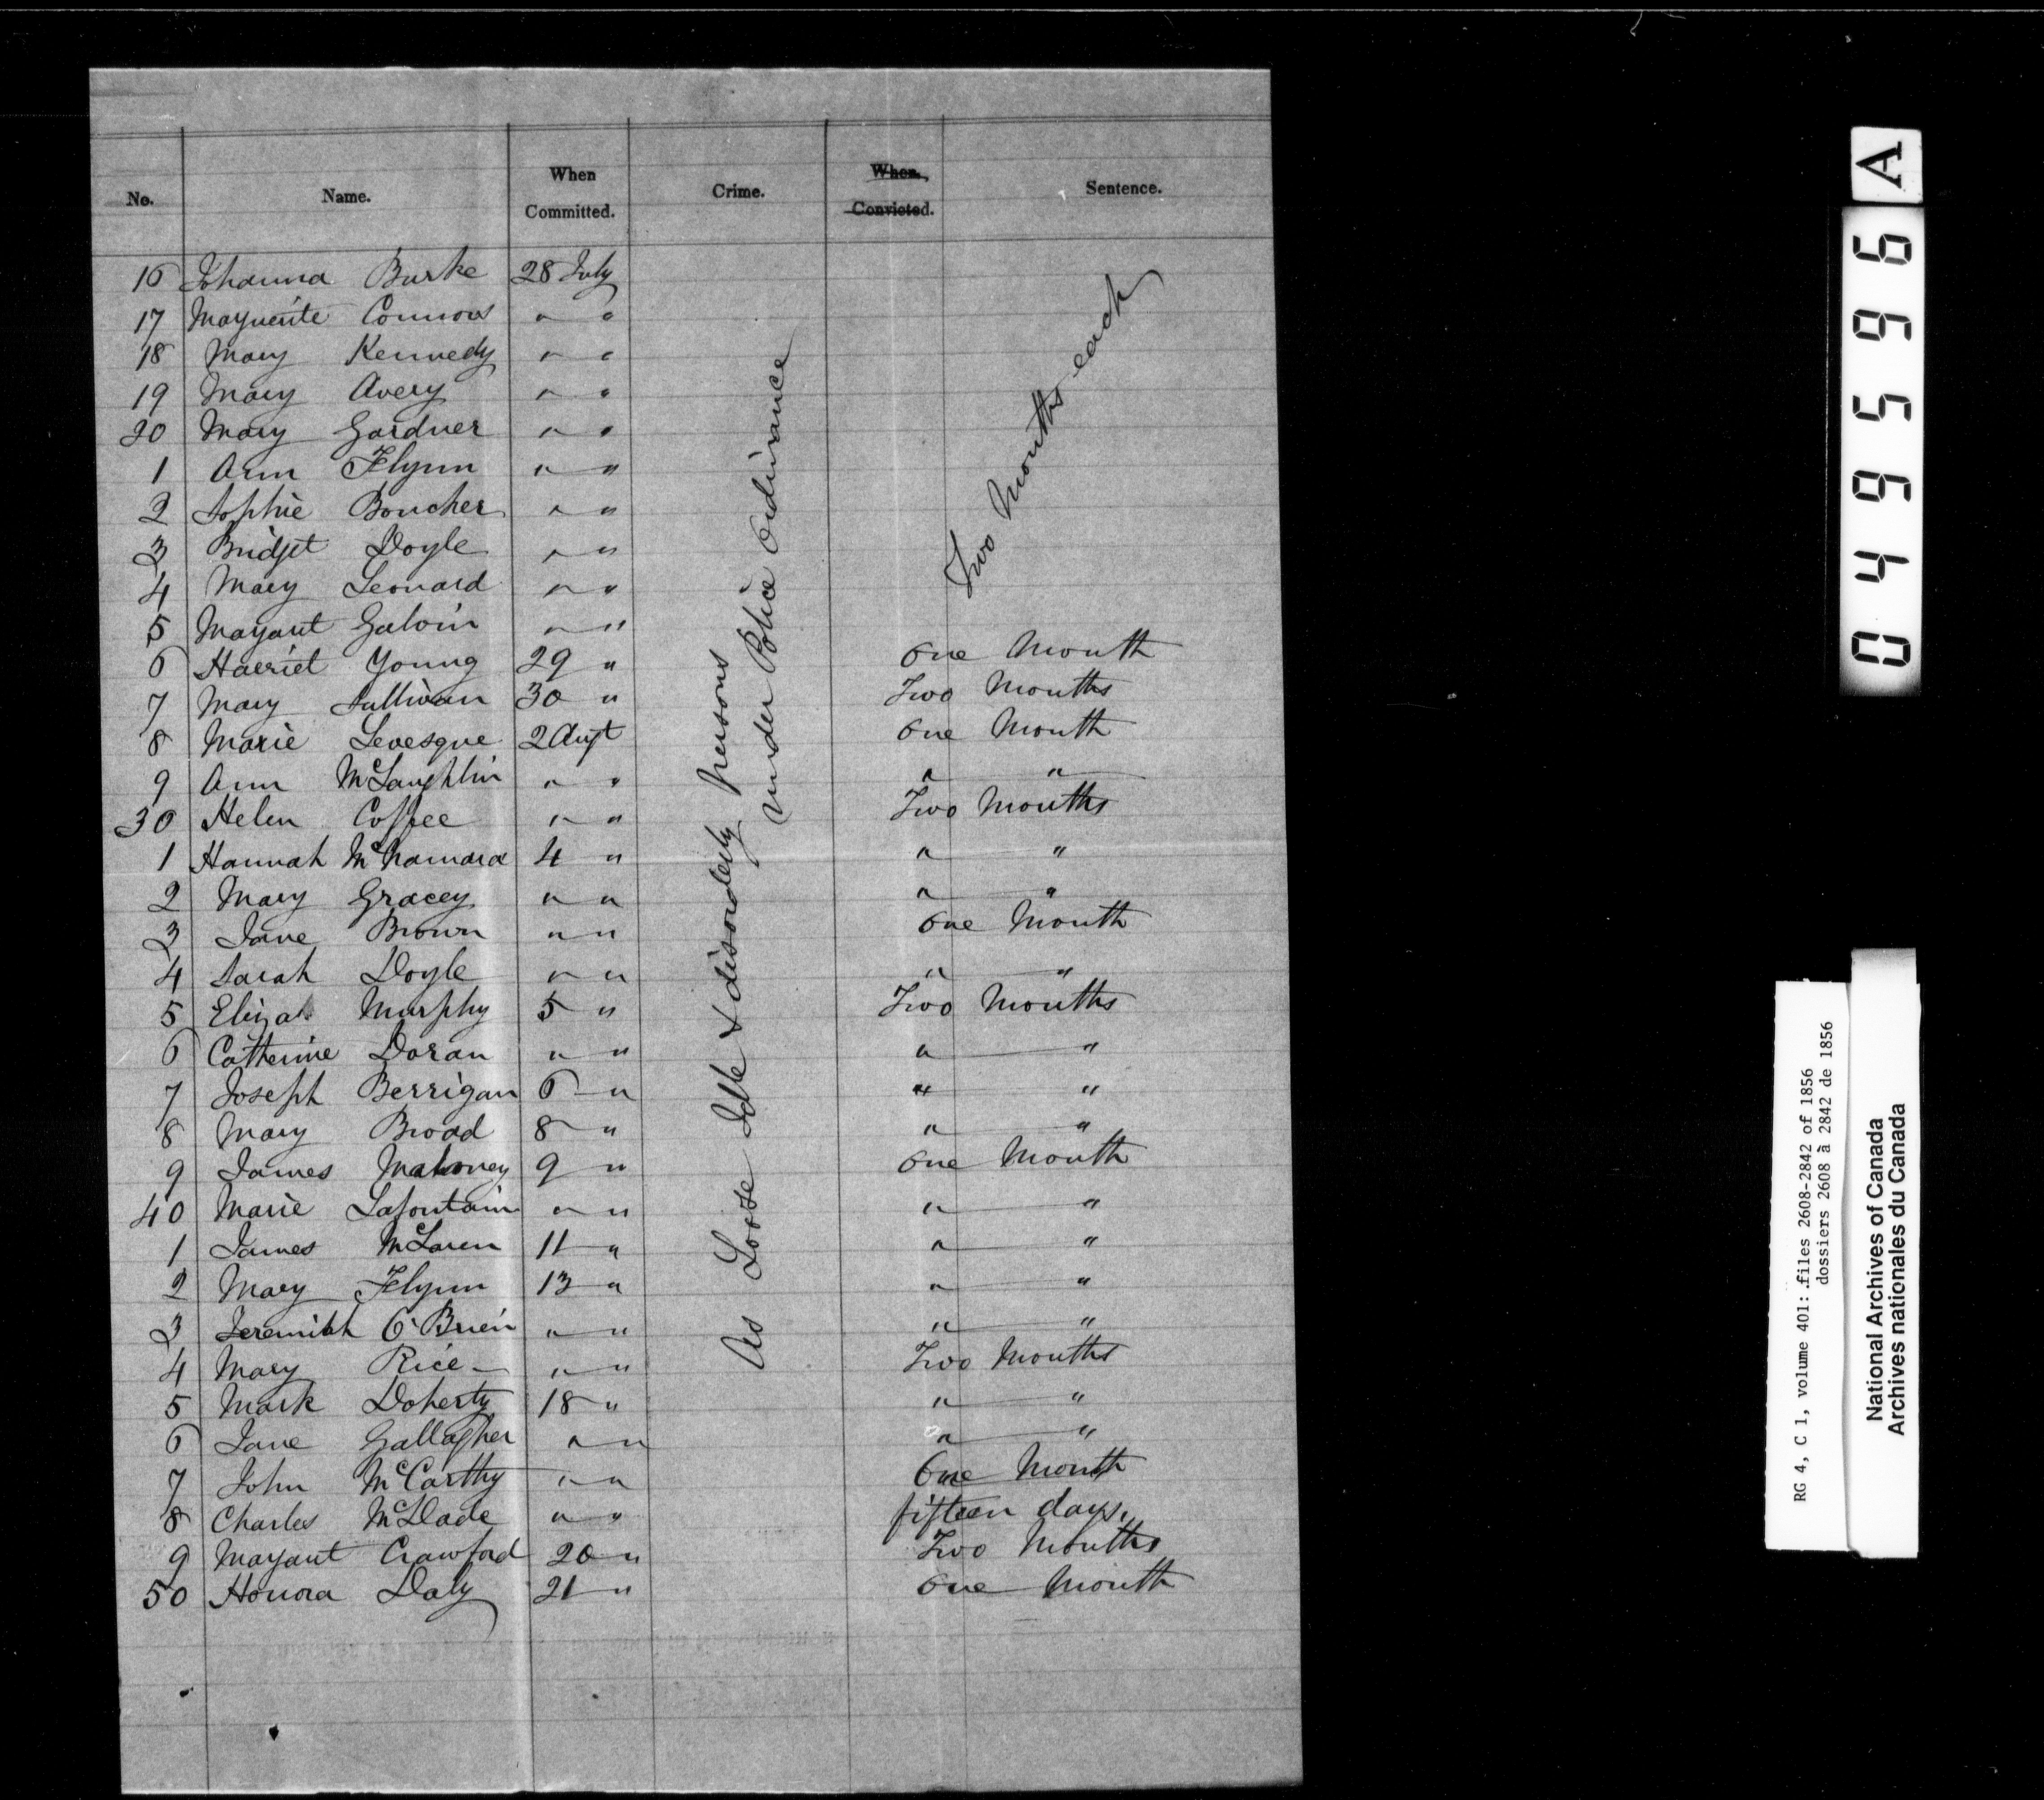 No. Name. When Committed. Crime. When Convicted. Sentence.
16 Johanna Burke 28 July
17 Marguerite Connors " "
18 Mary Kennedy " "
19 Mary Avery " "
20 Mary Gardner " "
1 Ann Flynn " "
2 Sophie Boucher " "
3 Bridget Doyle " "
4 Mary Leonard " "
5 Margaret Galvin " "
Two Months each
6 Harriet Young 29 " One Month
7 Mary Sullivan 30 " Two Months
8 Marie Levesque 2 Augt One Month
9 Ann McLaughlin " " " "
30 Helen Coffee " " Two Months
1 Hannah McNamara 4 " " "
2 Mary Gracey " " " "
3 Jane Brown " " One Month
4 Sarah Doyle " " " "
5 Elizah Murphy 5 " Two Months
6 Catherine Doran " " " "
7 Joseph Berrigan 6 " " "
8 Mary Broad 8 " " "
9 James Mahoney 9 " One Month
40 Marie Lafontain " " " "
1 James McLaren 11 " " "
2 Mary Flynn 13 " " "
3 Jeremiah O'Brien " " " "
4 Mary Rice " " Two Months
5 Mark Doherty 18 " " "
6 Jane Gallagher " " " "
7 John McCarthy " " One Month
8 Charles McDade " " fifteen days.
9 Margaret Crawford 20 " Two Months
50 Honora Daly 21 " One Month
As Loose Idle & disorderly persons
under Police Ordinance
049596 A
RG 4, C 1, volume 401: files 2608-2842 of 1856
dossiers 2608 à 2842 de 1856
National Archives of Canada
Archives nationales du Canada